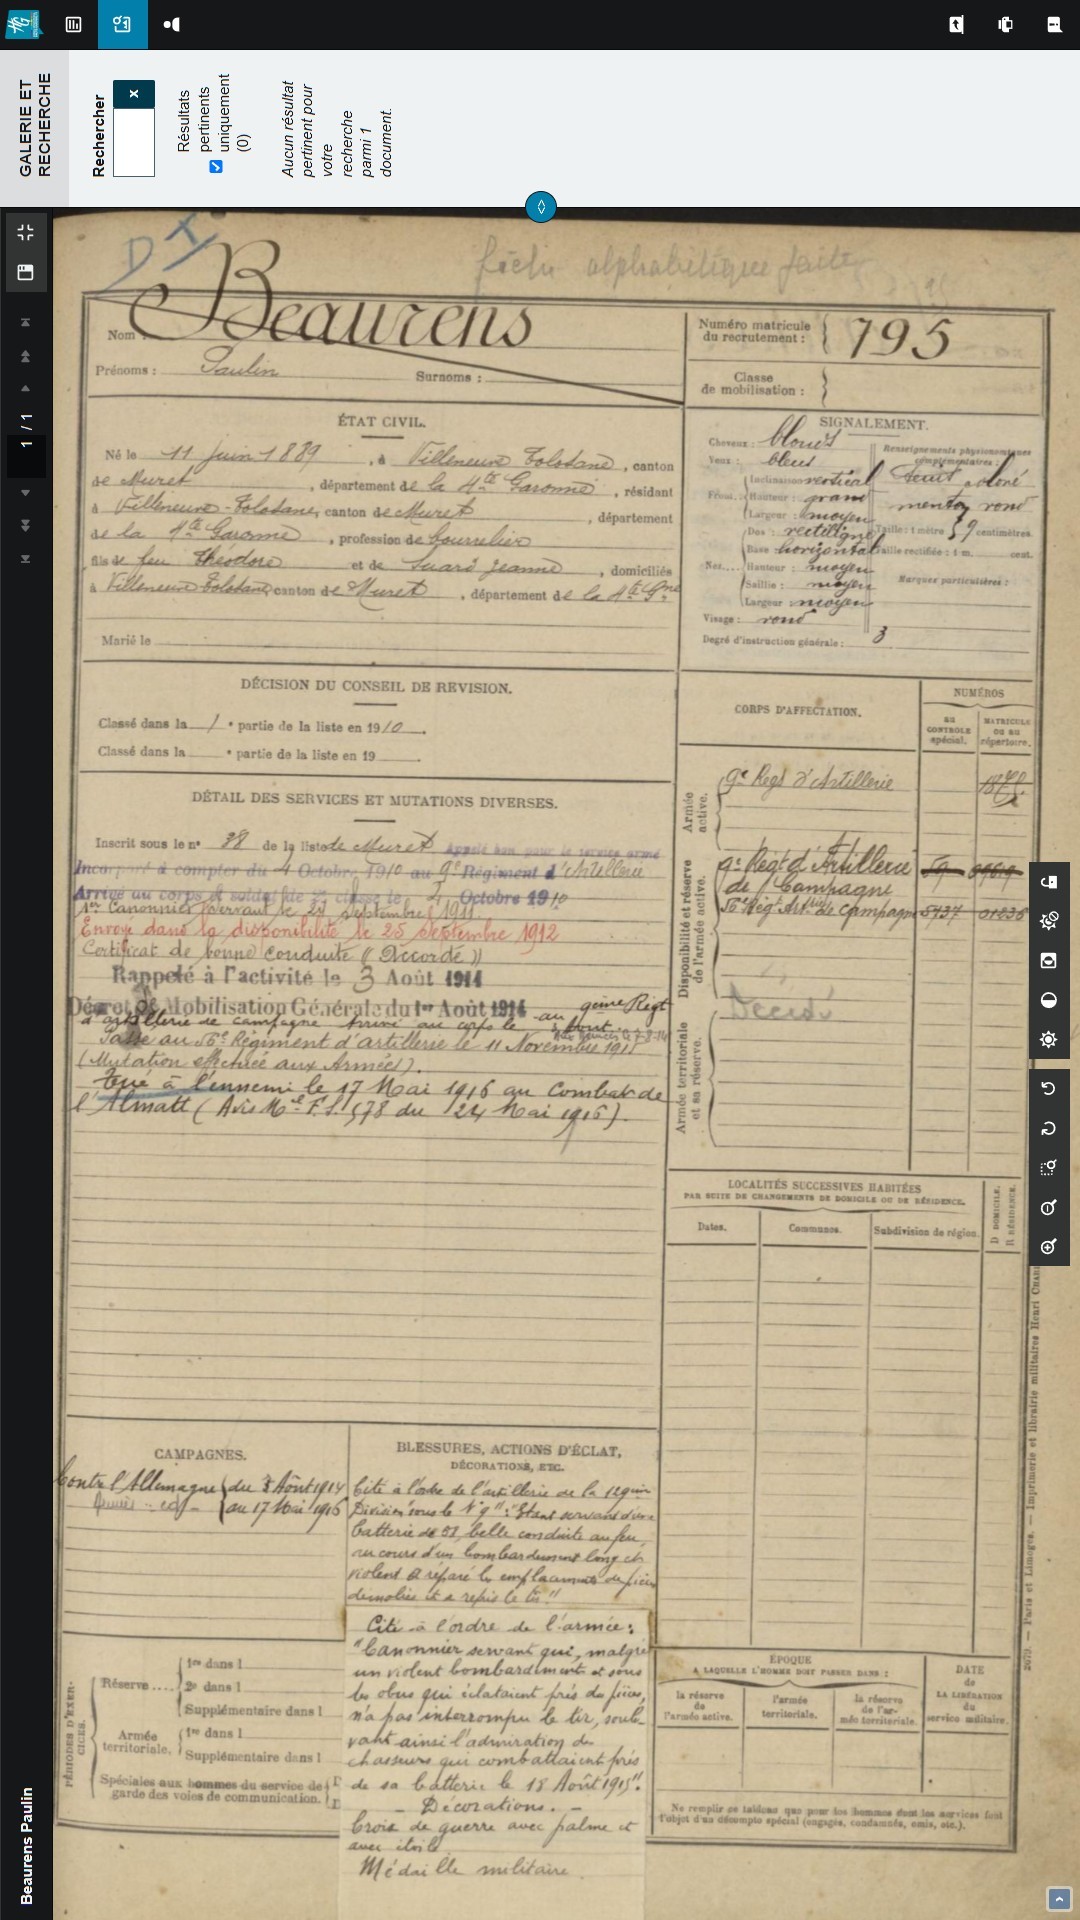 GALERIE ET
RECHERCHE
Rechercher
x
Résultats
pertinents
uniquement
(0)
Aucun résultat
pertinent pour
votre
recherche
parmi 1
document.
1 / 1
Beaurens Paulin
D
fiche alphabétique faite
Nom : Beaurens
Prénoms : Paulin Surnoms :
Numéro matricule
du recrutement : 795
Classe
de mobilisation :
ÉTAT CIVIL.
Né le 11 juin 1889, à Villeneuve Tolosane, canton
de Muret, département de la Hte Garonne, résidant
à Villeneuve-Tolosane, canton de Muret, département
de la Hte Garonne, profession de bourrelier
fils de feu Théodore et de Suaré Jeanne, domiciliés
à Villeneuve Tolosane, canton de Muret, département de la Hte Gne
Marié le
SIGNALEMENT.
Cheveux : blonds
Yeux : bleus
Front : Inclinaison vertical
Hauteur : grand
Largeur : moyen
Nez.... Dos : rectiligne
Base horizontal
Hauteur : moyen
Saillie : moyen
Largeur moyen
Visage : rond
Degré d'instruction générale : 3
Renseignements physionomiques
complémentaires :
menton rond
Taille : 1 mètre 59 centimètres
Taille rectifiée : 1 m. cent.
Marques particulières :
DÉCISION DU CONSEIL DE REVISION.
Classé dans la 1e partie de la liste en 1910.
Classé dans la e partie de la liste en 19
DÉTAIL DES SERVICES ET MUTATIONS DIVERSES.
Inscrit sous le n° 38 de la liste de Muret Appelé bon pour le service armé
Incorporé à compter du 4 Octobre 1910 au 9e Régiment d'Artillerie
Arrivé au corps et soldat de 2e classe le Octobre 1910
1er Canonnier servant le 27 Septembre 1911.
Envoyé dans la disponibilité le 25 Septembre 1912
Certificat de bonne conduite "Accordé"
Rappelé à l'activité le 3 Août 1914
Décret de Mobilisation Générale du 1er Août 1914 au 9ème Régt
d'artillerie de campagne Arrivé au corps le 3 Aout
Passé au 56e Régiment d'artillerie le 11 Novembre 1915
(Mutation effectuée aux Armées).
Tué à l'ennemi le 17 Mai 1916 au Combat de
l'Almatt (Avis Mel F.S. 578 du 24 Mai 1916).
CORPS D'AFFECTATION.
NUMÉROS
au
CONTROLE
spécial.
MATRICULE
OU au
répertoire.
Armée
active.
9e Régt d'Artillerie
Disponibilité et réserve
de l'armée active.
9e Régt d'Artillerie
de Campagne
56e Régt Artie de Campagne 5737 01236
Décédé
Armée territoriale
et sa réserve.
LOCALITÉS SUCCESSIVES HABITÉES
PAR SUITE DE CHANGEMENTS DE DOMICILE OU DE RÉSIDENCE.
Dates.
Communes.
Subdivision de région.
D DOMICILE.
R RÉSIDENCE.
CAMPAGNES.
Contre l'Allemagne du 3 Août 1914
au 17 Mai 1916
BLESSURES, ACTIONS D'ÉCLAT,
DÉCORATIONS, ETC.
Cité à l'odre de l'artillerie de la
Division sous le N° 9 : "Etant servant d'une
batterie de 58, belle conduite au feu,
au cours d'un bombardement long et
violent a réparé les emplacements de pièces
démolies et a repris le tir."
Cité à l'ordre de l'armée :
"Canonnier servant qui, malgré
un violent bombardement et sous
les obus qui éclataient près des pièces,
n'a pas interrompu le tir, soule-
vant ainsi l'admiration des
chasseurs qui combattaient près
de sa batterie le 18 Août 1915".
- Décorations. -
Croix de guerre avec palme et
avec étoile
Médaille militaire
PÉRIODES D'EXER-
CICES.
Réserve.... 1re dans l
2e dans l
Supplémentaire dans l
Armée
territoriale. 1re dans l
Supplémentaire dans l
Spéciales aux hommes du service de
garde des voies de communication.
ÉPOQUE
A LAQUELLE L'HOMME DOIT PASSER DANS :
la réserve
de
l'armée active.
l'armée
territoriale.
la réserve
de l'ar-
mée territoriale.
DATE
de
LA LIBÉRATION
du
service militaire.
Ne remplir ce tableau que pour les hommes dont les services font
l'objet d'un décompte spécial (engagés, condamnés, omis, etc.).
— Paris et Limoges. — Imprimerie et librairie militaires Henri